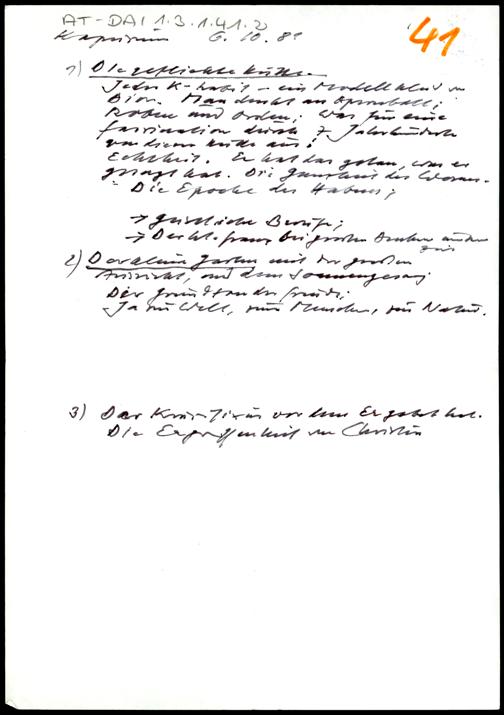 AT-DAI 1.3.1.41.2
41
6. 10. 81
1) Die geflickte Kutte.
Jedes K-habit - ein Modellkleid von
Dior. Man denkt an Opernball;
Roben und Orden; Was für eine
Faszination durch 7 Jahrhunderte
von dieser Kutte aus!
Echtheit. Er hat das getan, was er
gesagt hat. Die
"Die Epoche des Habens;
→ geistliche Berufe;
→ Der hl. franz bei großen
2) Der kleine Garten mit der großen
Aussicht, und dem Sonnengesang
Der
Ja zur Welt, zum Menschen, zur Natur.
3) Der Kruzifixus vor dem Er gebetet hat.
Die Ergriffenheit von Christus